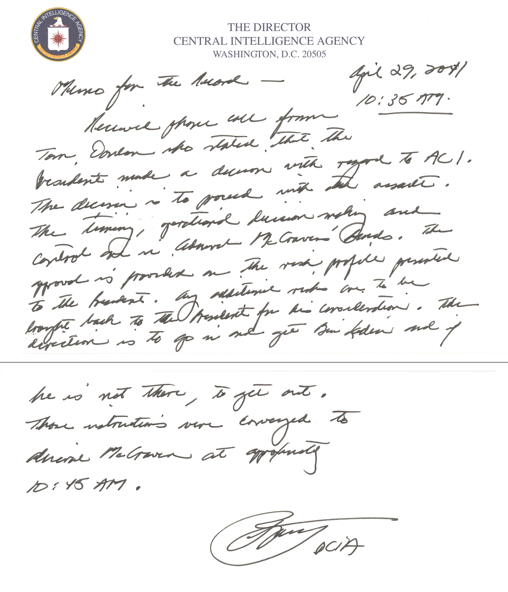 CENTRAL INTELLIGENCE AGENCY
UNITED STATES OF AMERICA
THE DIRECTOR
CENTRAL INTELLIGENCE AGENCY
WASHINGTON, D.C. 20505
Memo for the Record —
April 29, 2011
10:35 AM.
Received phone call from
Tom Donilon who stated that the
President made a decision with regard to AC1.
The decision is to proceed with the assault.
The timing, operational decision making and
control are in Admiral McRavens hands. The
approval is provided on the risk profile presented
to the President. Any additional risks are to be
brought back to the President for his consideration. The
direction is to go in and get Bin Laden and if
he is not there, to get out.
Those instructions were conveyed to
Admiral McRaven at approximately
10:45 AM.
DCIA